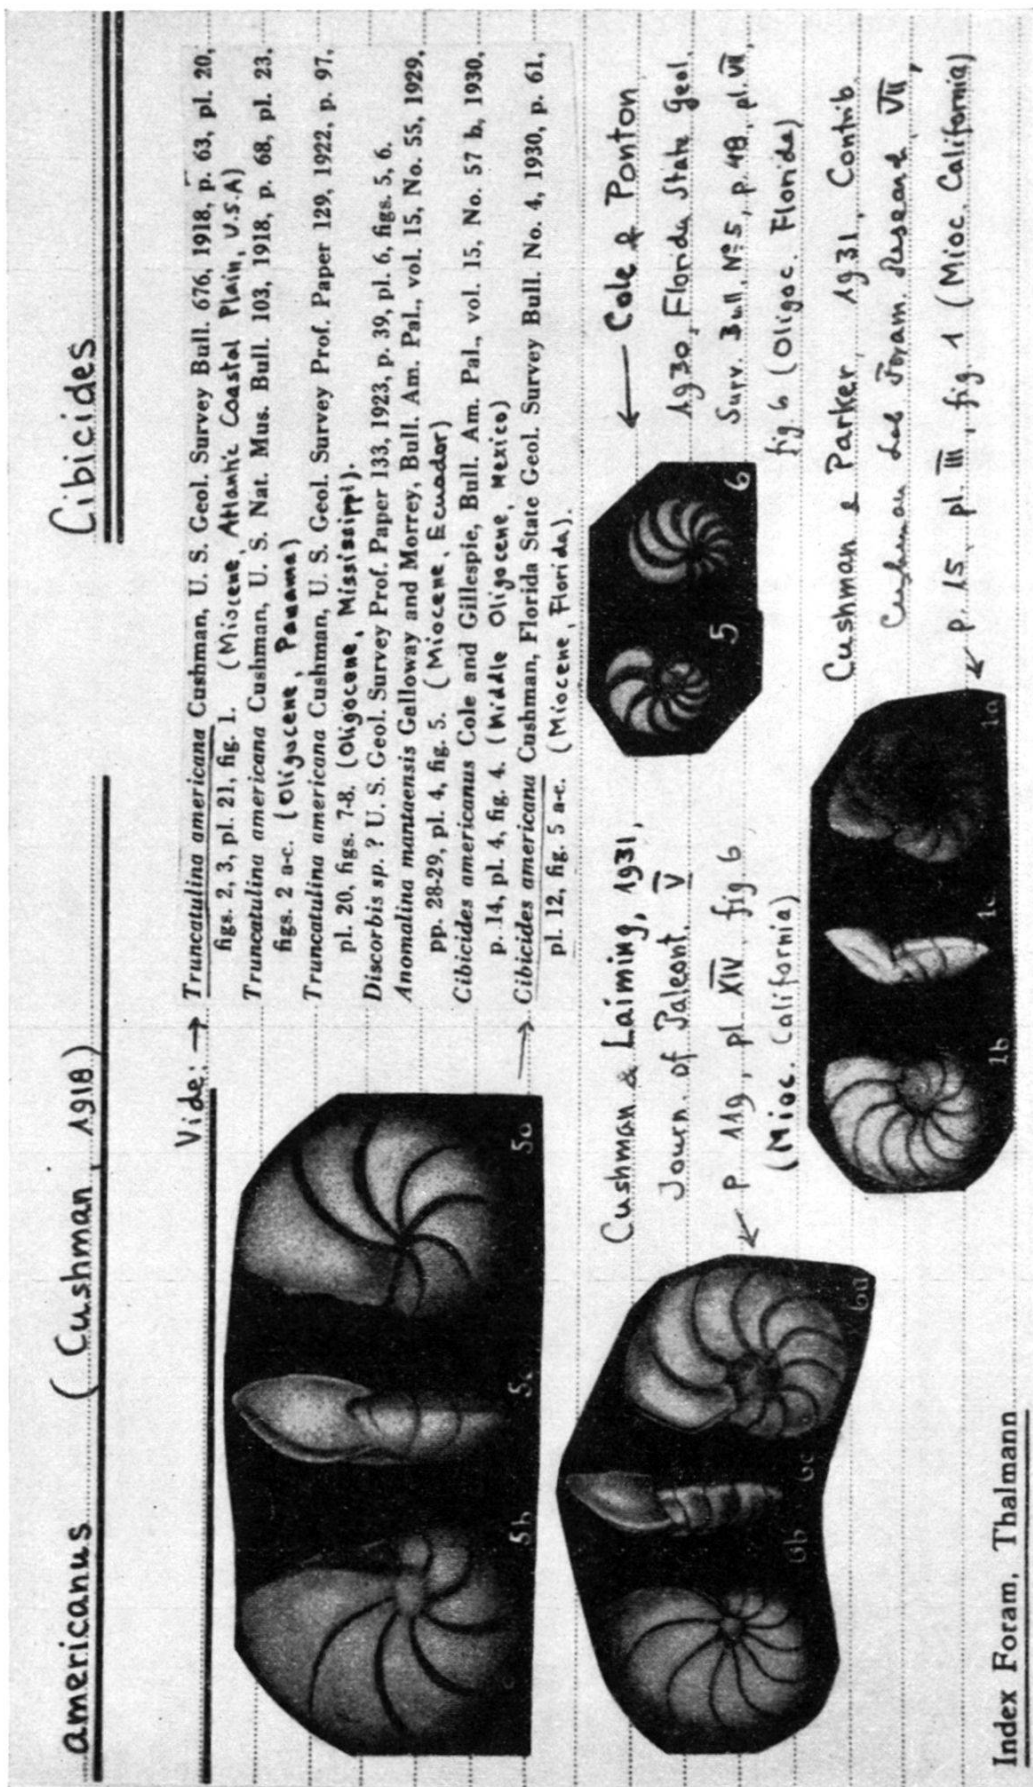 americanus (Cushman, 1918) Cibicides
Vide: → Truncatulina americana Cushman, U. S. Geol. Survey Bull. 676, 1918, p. 63, pl. 20,
figs. 2, 3, pl. 21, fig. 1. (Miocene, Atlantic Coastal Plain, U.S.A)
Truncatulina americana Cushman, U. S. Nat. Mus. Bull. 103, 1918, p. 68, pl. 23,
figs. 2 a-c. (Oligocene, Panama)
Truncatulina americana Cushman, U. S. Geol. Survey Prof. Paper 129, 1922, p. 97,
pl. 20, figs. 7-8. (Oligocene, Mississippi).
Discorbis sp. ? U. S. Geol. Survey Prof. Paper 133, 1923, p. 39, pl. 6, figs. 5, 6.
Anomalina mantaensis Galloway and Morrey, Bull. Am. Pal., vol. 15, No. 55, 1929,
pp. 28-29, pl. 4, fig. 5. (Miocene, Ecuador)
Cibicides americanus Cole and Gillespie, Bull. Am. Pal., vol. 15, No. 57 b, 1930,
p. 14, pl. 4, fig. 4. (Middle Oligocene, Mexico)
→ Cibicides americana Cushman, Florida State Geol. Survey Bull. No. 4, 1930, p. 61,
pl. 12, fig. 5 a-c. (Miocene, Florida).
5b 5c 5a
5 6
← Cole & Ponton
1930, Florida State Geol.
Surv. Bull. No. 5, p. 48, pl. VII,
fig. 6 (Oligoc. Florida)
Cushman & Laiming, 1931
Journ. of Paleont. V
p. 119, pl XIV. fig 6
(Mioc. California)
6b 6c 6a
Cushman & Parker, 1931, Contrib.
Cushman Lab Foram. Research, VII,
p. 15. pl. III, fig. 1 (Mioc. California)
1b 1c 1a
Index Foram, Thalmann